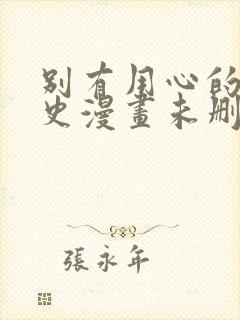 别有用心的
史漫畫未刪
張永年